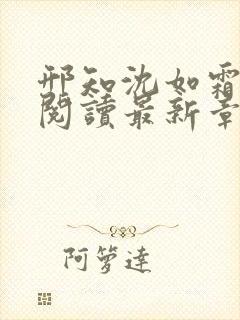 邢知沈如霜
閱讀最新章
阿籮達